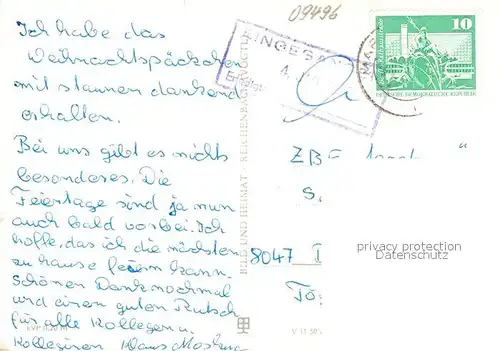 Ich habe das
Weihnachtspäckchen
mit staunen dankend
erhalten.
Bei uns gibt es nichts
besonderes. Die
Feiertage sind ja nun
auch bald vorbei. Ich
hoffe, das ich die nächsten
zu hause feiern kann.
Schönen Dank nochmal
und einen guten Rutsch
für alle Kollegen u.
Kolleginen Klaus
BILD UND HEIMAT REICHENBACH (VOGTL)
V 11 50
09496
EINGEGAN
4.
10
DEUTSCHE DEMOKRATISCHE REPUBLIK
ZBE
S.
8047 I
privacy protection
Datenschutz